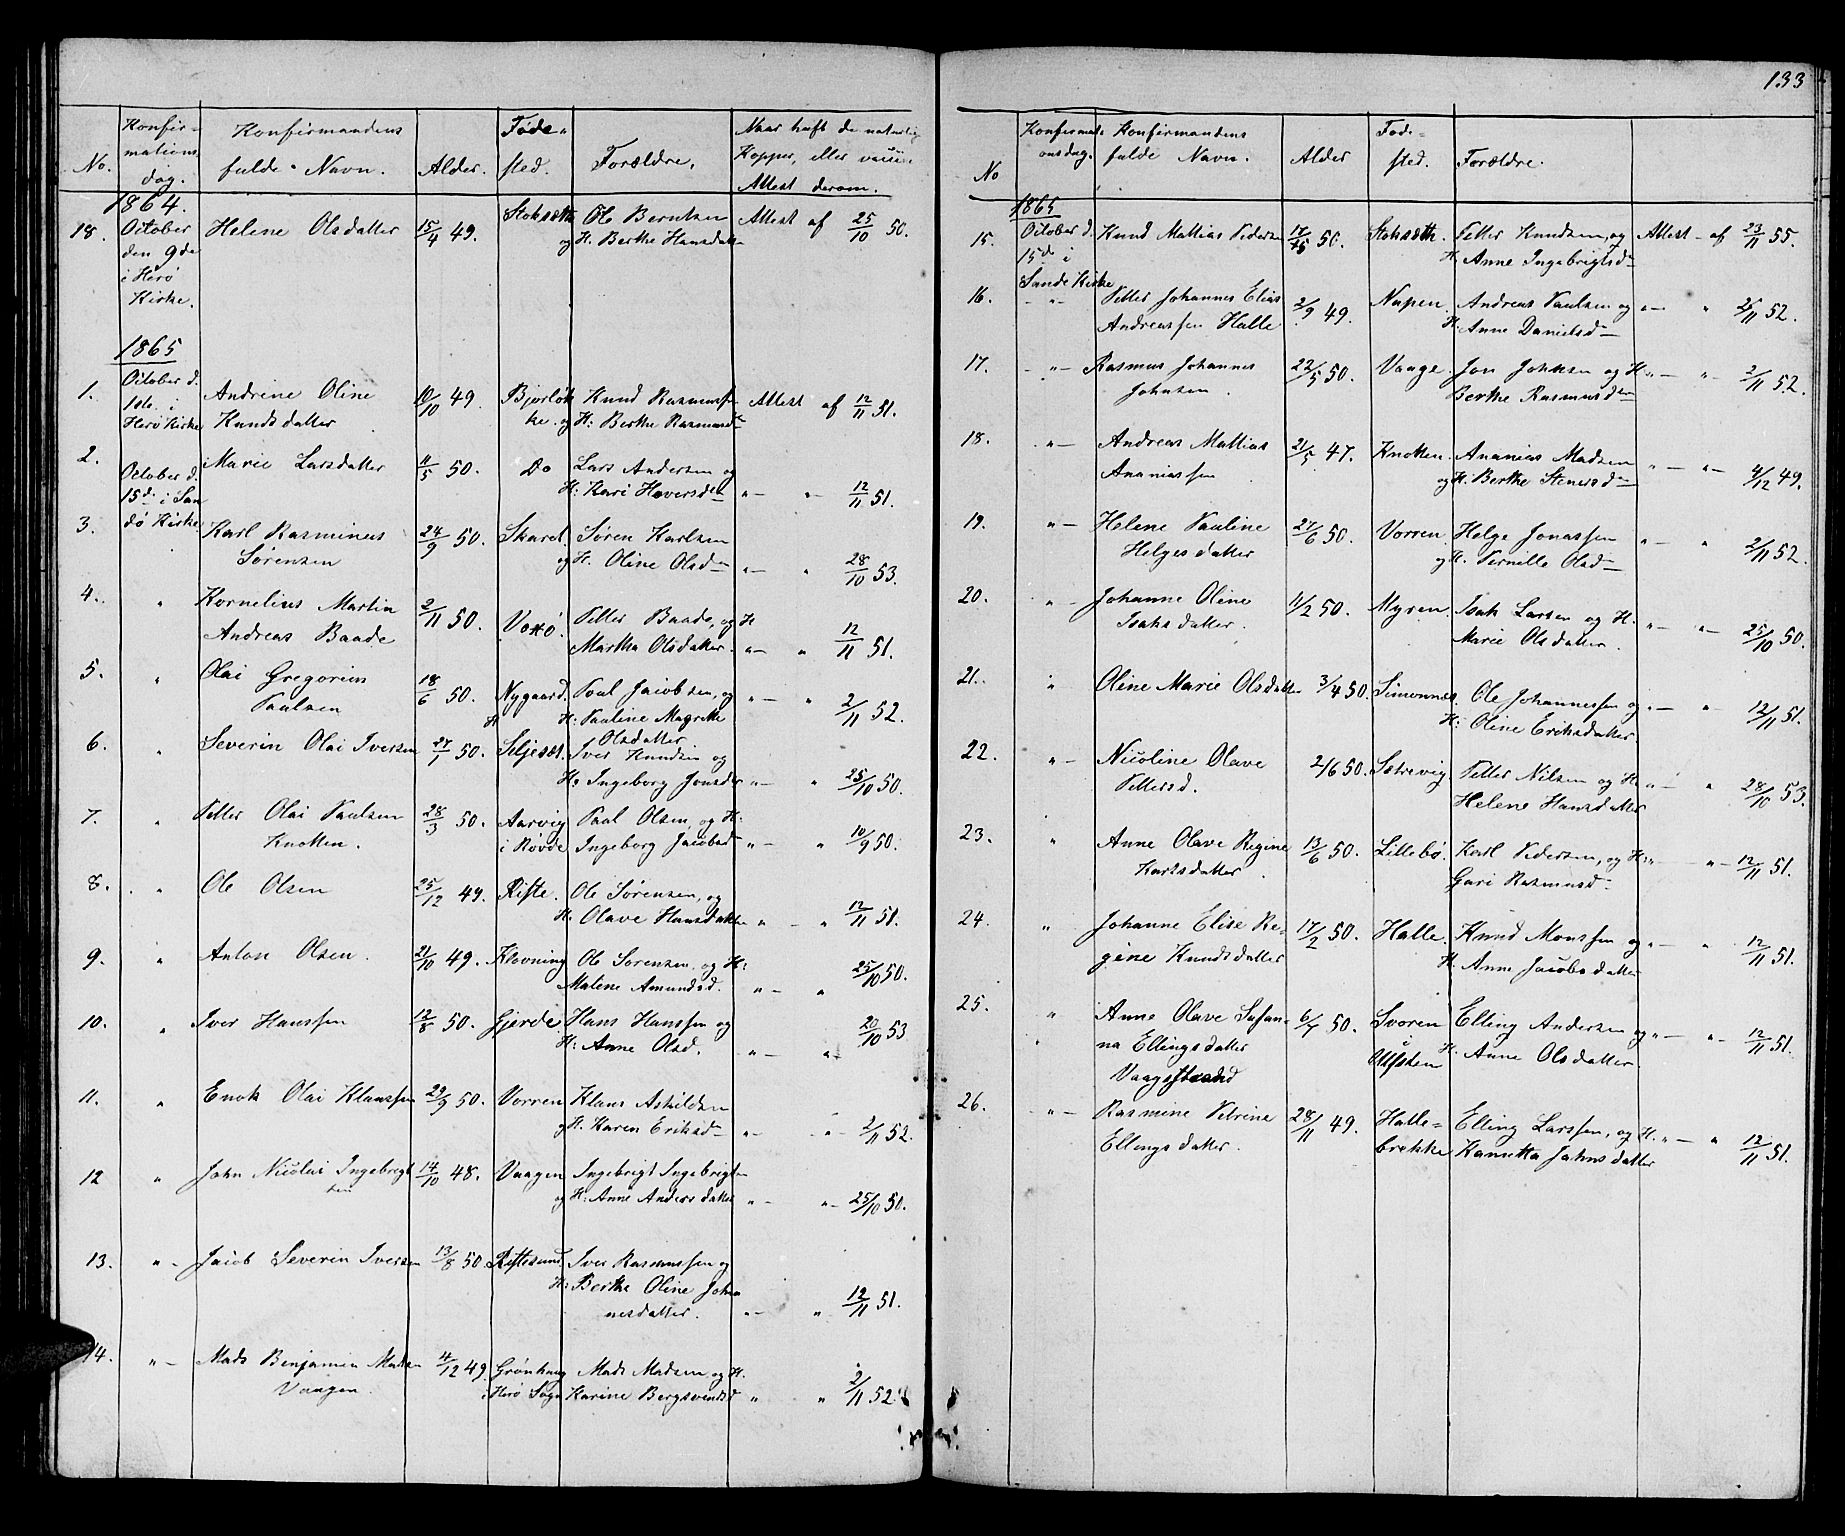 Konfir-
mations
dag.
No.
Konfirmandens
fulde Navn.
Alder.
Føde-
sted.
Forældre.
Naar haft de naturlig
Kopper, eller vacci
Attest derom.
1864.
18. October Helene Olsdatter 15/4 49. Stoksæth Ole Berntsen Attest af 25/10 50.
den 9de og H. Berthe Hansdatter
i Herø
Kirke.
1865
1. October d. Andrine Oline 10/10 49. Bjørlök Knud Rasmussen Attest af 12/11 51.
1ste i Knudsdatter ke. og H: Berthe Rasmusd
Herø Kirke
2. October d. Marie Larsdatter 11/5 50. Do Lars Andersen og
15de i San H: Kari Haversd " — " 12/11 51.
dø Kirke
3. Karl Rasminus 24/9 50. Skaret Søren Karlsen
Sørensen og H. Oline Olsd " — " 28/10 53.
4. " Kornelius Martin 2/11 50. Voxö. Petter Baade, og H
Andreas Baade Martha Olsdatter. " — " 12/11 51.
5. " Olai Gregorius 18/6 50. Nygaard. Poul Jacobsen, og " — " 2/11 52.
Paulsen H: Pauline Magrethe
Olsdatter
6. " Severin Olai Iversen 27/1 50. Seljesæt. Iver Knudsen og
H: Ingeborg Jonsdr " — " 25/10 50.
7. " Petter Olai Paulsen 28/3 50. Aarvig Paul Olsen, og H:
Knotten. i Røvde Ingeborg Jacobsd " — " 10/9 50.
8. " Ole Olsen 25/12 49. Riste. Ole Sørensen, og
H: Olave Hansdatter " — " 12/11 51.
9. " Anton Olsen. 21/10 49. Klovning Ole Sørensen, og H:
Malene Amundsd. " — " 25/10 50.
10. " Iver Hanssen 12/8 50. Gjerde. Hans Hanssen og 20/10 53
H: Anne Olsd. " — "
11. " Enok Olai Klaussen 29/9 50. Vorren Klaus Askildsen
og H. Karen Eriksd " — " 2/11 52.
12 " John Nicolai Ingebrigt 14/10 48. Vaagen Ingebrigt Ingebrigtsen
sen og H: Anne Andersdatter " — " 25/10 50.
13. " - Jacob Severin Iversen 13/8 50. Ristesund. Iver Rasmussen og
H: Berthe Oline Joha
nesdatter. " — " 12/11 51.
14. " — Mads Benjamin Madsen 4/12 49 Grønhaug Mads Madsen og H.
Vaagen. Herø Sogn Karine Bergsvendsd " " 2/11 52.
133
No
Konfirmati-
onsdag.
Konfirmandens
fulde Navn.
Alder
Føde-
sted.
Forældre.
1865
15. October d. Knud Mattias Pedersen 50. Stoksæth. Petter Knudsen, og Attest - af 23/11 55.
15de i H. Anne Ingebrigtsd
Sande Kirke
16. - " - Petter Johannes Elias 2/9 49. Napen Andreas Paulsen og " — " 26/11 52.
Andreassen Halle H. Anne Danielsd
17. - " - Rasmus Johannes 22/5 50. Vaage. Jon Johnsen og H. " — " 2/11 52.
Johnsen. Berthe Rasmusd
18. " — Andreas Mattias 21/5 47. Knotten. Ananias Madsen
Ananiassen og H. Berthe Stenersd " — " 4/12 49.
19. " — Helene Pauline 27/6 50. Vorren Helge Jonassen " — " 2/11 52.
Helgesdatter og H. Pernille Olsd
20. " — Johanne Oline 11/2 50. Myren. Isak Larsen og H.
Isaksdatter. Marie Olsdatter. " — " 25/10 50.
21. " Oline Marie Olsdatter 3/4 50. Simonnæs. Ole Johannessen og " — " 12/11 51.
H: Oline Eriksdatter.
22. " — Nicoline Olave 2/6 50. Sætrevig Petter Nilsen og H. " — " 28/10 53.
Pettersd. Helene Hansdatter
23. " Anne Olave Regine 13/6 50. Lillebø. Karl Pedersen, og H: " — " 12/11 51.
Karlsdatter. Guri Rasmusd
24. " Johanne Elise Re- 17/2 50. Halle. Knud Monssen og " — " 12/11 51.
gine Knudsdatter H. Anne Jacobsdatter
25. " Anne Olave Susan- 6/7 50. Svoren Elling Andersen og " — " 12/11 51.
na Ellingsdatter i H. Anne Olsdatter.
Vaagsstrand Ulfsten
26. " — Rasmine Petrine 28/11 49. Halle- Elling Larssen, og H. " — " 12/11 51.
Ellingsdatter. brekke Kanutta Johnsdatter